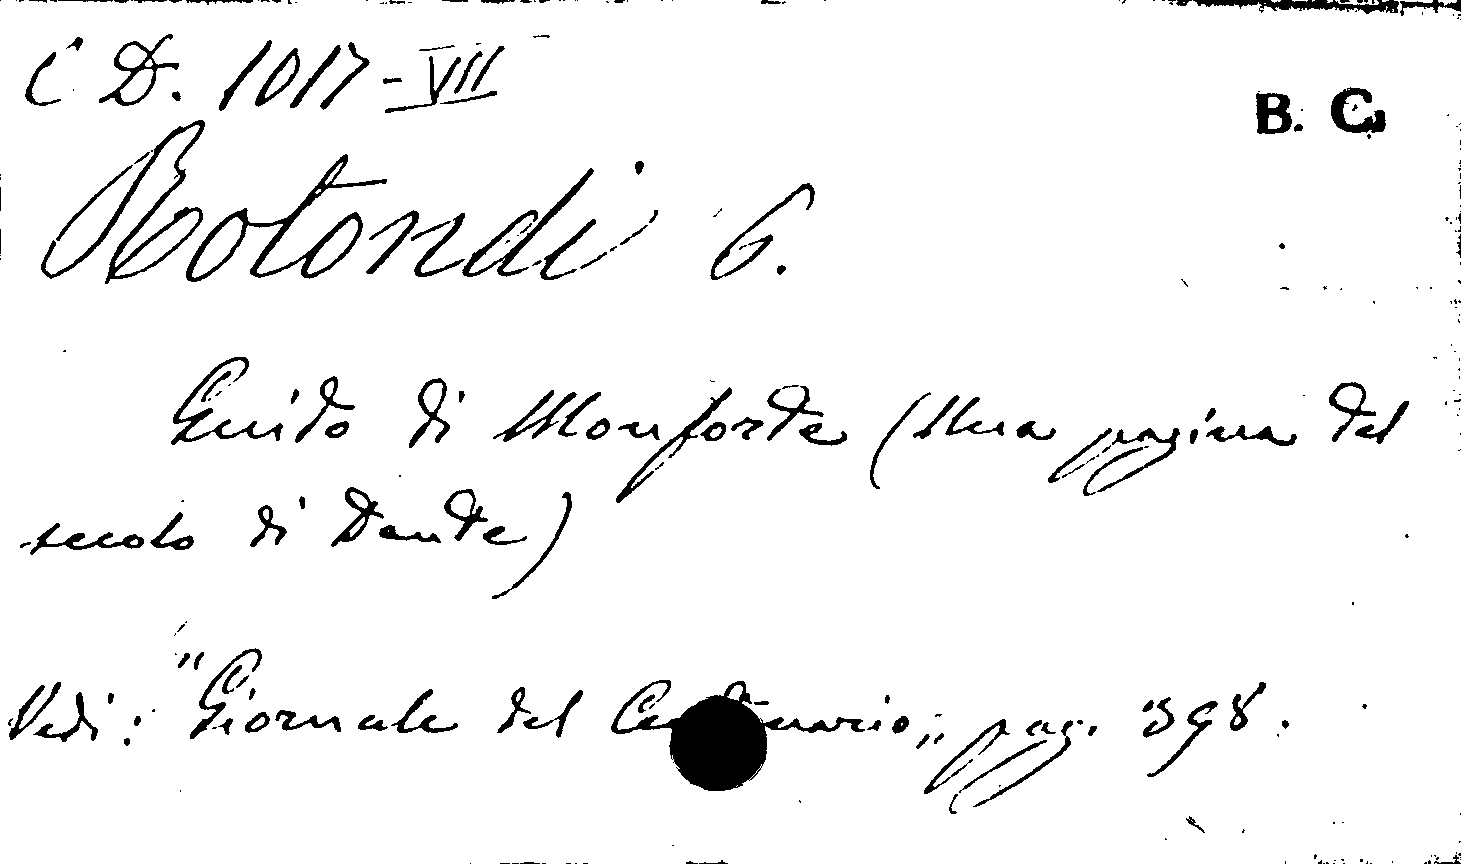 C D. 1017-VII
B. C.
Rotondi G.
Guido di Monforte (Una pagina del
secolo di Dante)
Vedi: "Giornale del Centenario„ pag. 398.